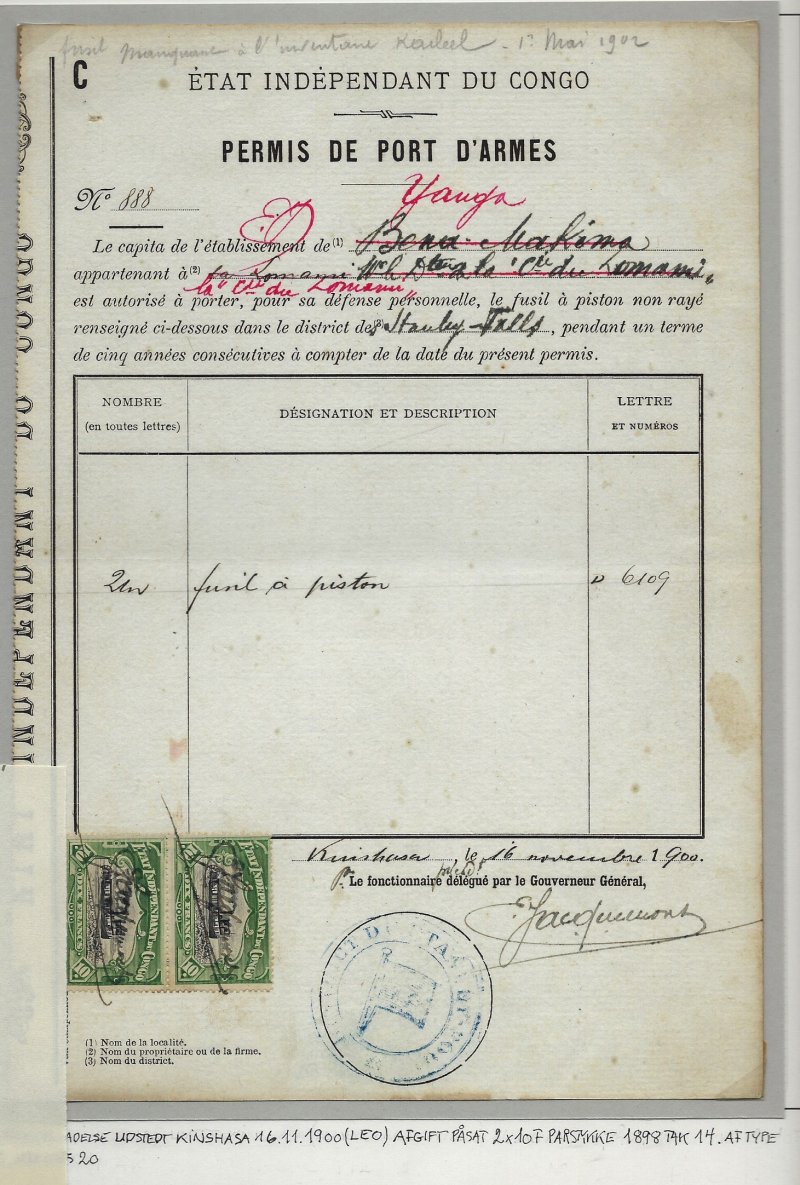 fusil manquant à l'inventaire - 1er Mai 1902
C
ÉTAT INDÉPENDANT DU CONGO
PERMIS DE PORT D'ARMES
Yanga
No 888
Le capita de l'établissement de (1) Bena-Makima
appartenant à (2) la Lomami la "Cie du Lomami"
la "Cie du Lomami"
est autorisé à porter, pour sa défense personnelle, le fusil à piston non rayé
renseigné ci-dessous dans le district de (3) Stanley-Falls, pendant un terme
de cinq années consécutives à compter de la date du présent permis.
NOMBRE DÉSIGNATION ET DESCRIPTION LETTRE
(en toutes lettres) ET NUMÉROS
Un fusil à piston D 6109
Kinshasa, le 16 novembre 1900.
Le fonctionnaire délégué par le Gouverneur Général,
Jacquemont
ETAT INDÉPENDANT DU CONGO
DIX FRANCS
10
ETAT INDÉPENDANT DU CONGO
DIX FRANCS
10
(1) Nom de la localité.
(2) Nom du propriétaire ou de la firme.
(3) Nom du district.
INDÉPENDANT DU CONGO
ADELSE UDSTEDT KINSHASA 16.11.1900 (LEO) AFGIFT PÅSAT 2x10F PARSTYKKE 1898 TAK 14. AF TYPE
20